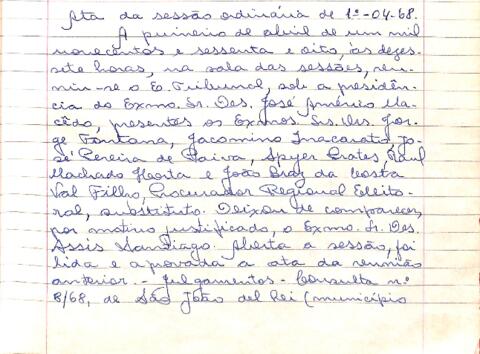 Ata da sessão ordinária de 1º-04-68.
A primeiro de abril de um mil
novecentos e sessenta e oito, às dezes-
sete horas, na sala das sessões, reu-
niu-se o E. Tribunal, sob a presidên-
cia do Exmo. Sr. Des. José Américo Ma-
cêdo, presentes os Exmos. Srs. Drs. Jor-
ge Fontana, Jacomino Inacarato, Jo-
sé Pereira de Paiva, Spyer Prates, Raul
Machado Horta e João Braz da Costa
Val Filho, Procurador Regional Eleito-
ral, substituto. Deixou de comparecer,
por motivo justificado, o Exmo. Sr. Des.
Assis Santiago. Aberta a sessão, foi
lida e aprovada a ata da reunião
anterior. - Julgamentos - Consulta nº
8/68, de São João del Rei (município